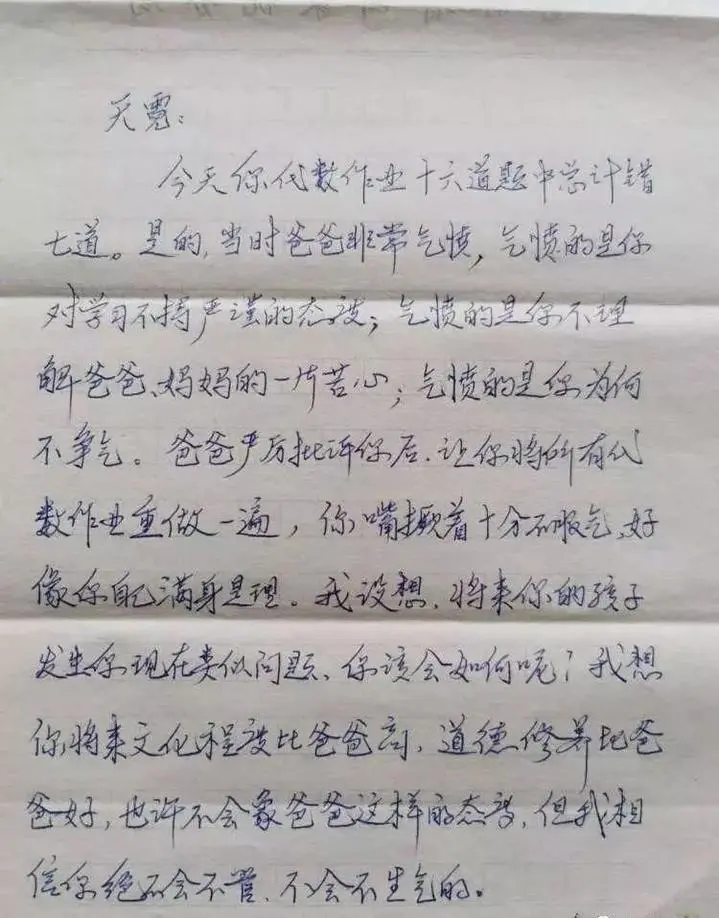 天霓：
今天你代数作业十六道题中总计错
七道。是的，当时爸爸非常气愤，气愤的是你
对学习不持严谨的态度；气愤的是你不理
解爸爸、妈妈的一片苦心；气愤的是你为何
不争气。爸爸严厉批评你后，让你将所有代
数作业重做一遍，你嘴撅着十分不服气，好
像你自己满身是理。我设想，将来你的孩子
发生你现在类似问题，你该会如何呢？我想
你将来文化程度比爸爸高，道德修养比爸
爸好，也许不会象爸爸这样的态度，但我相
信你绝不会不管，不会不生气的。